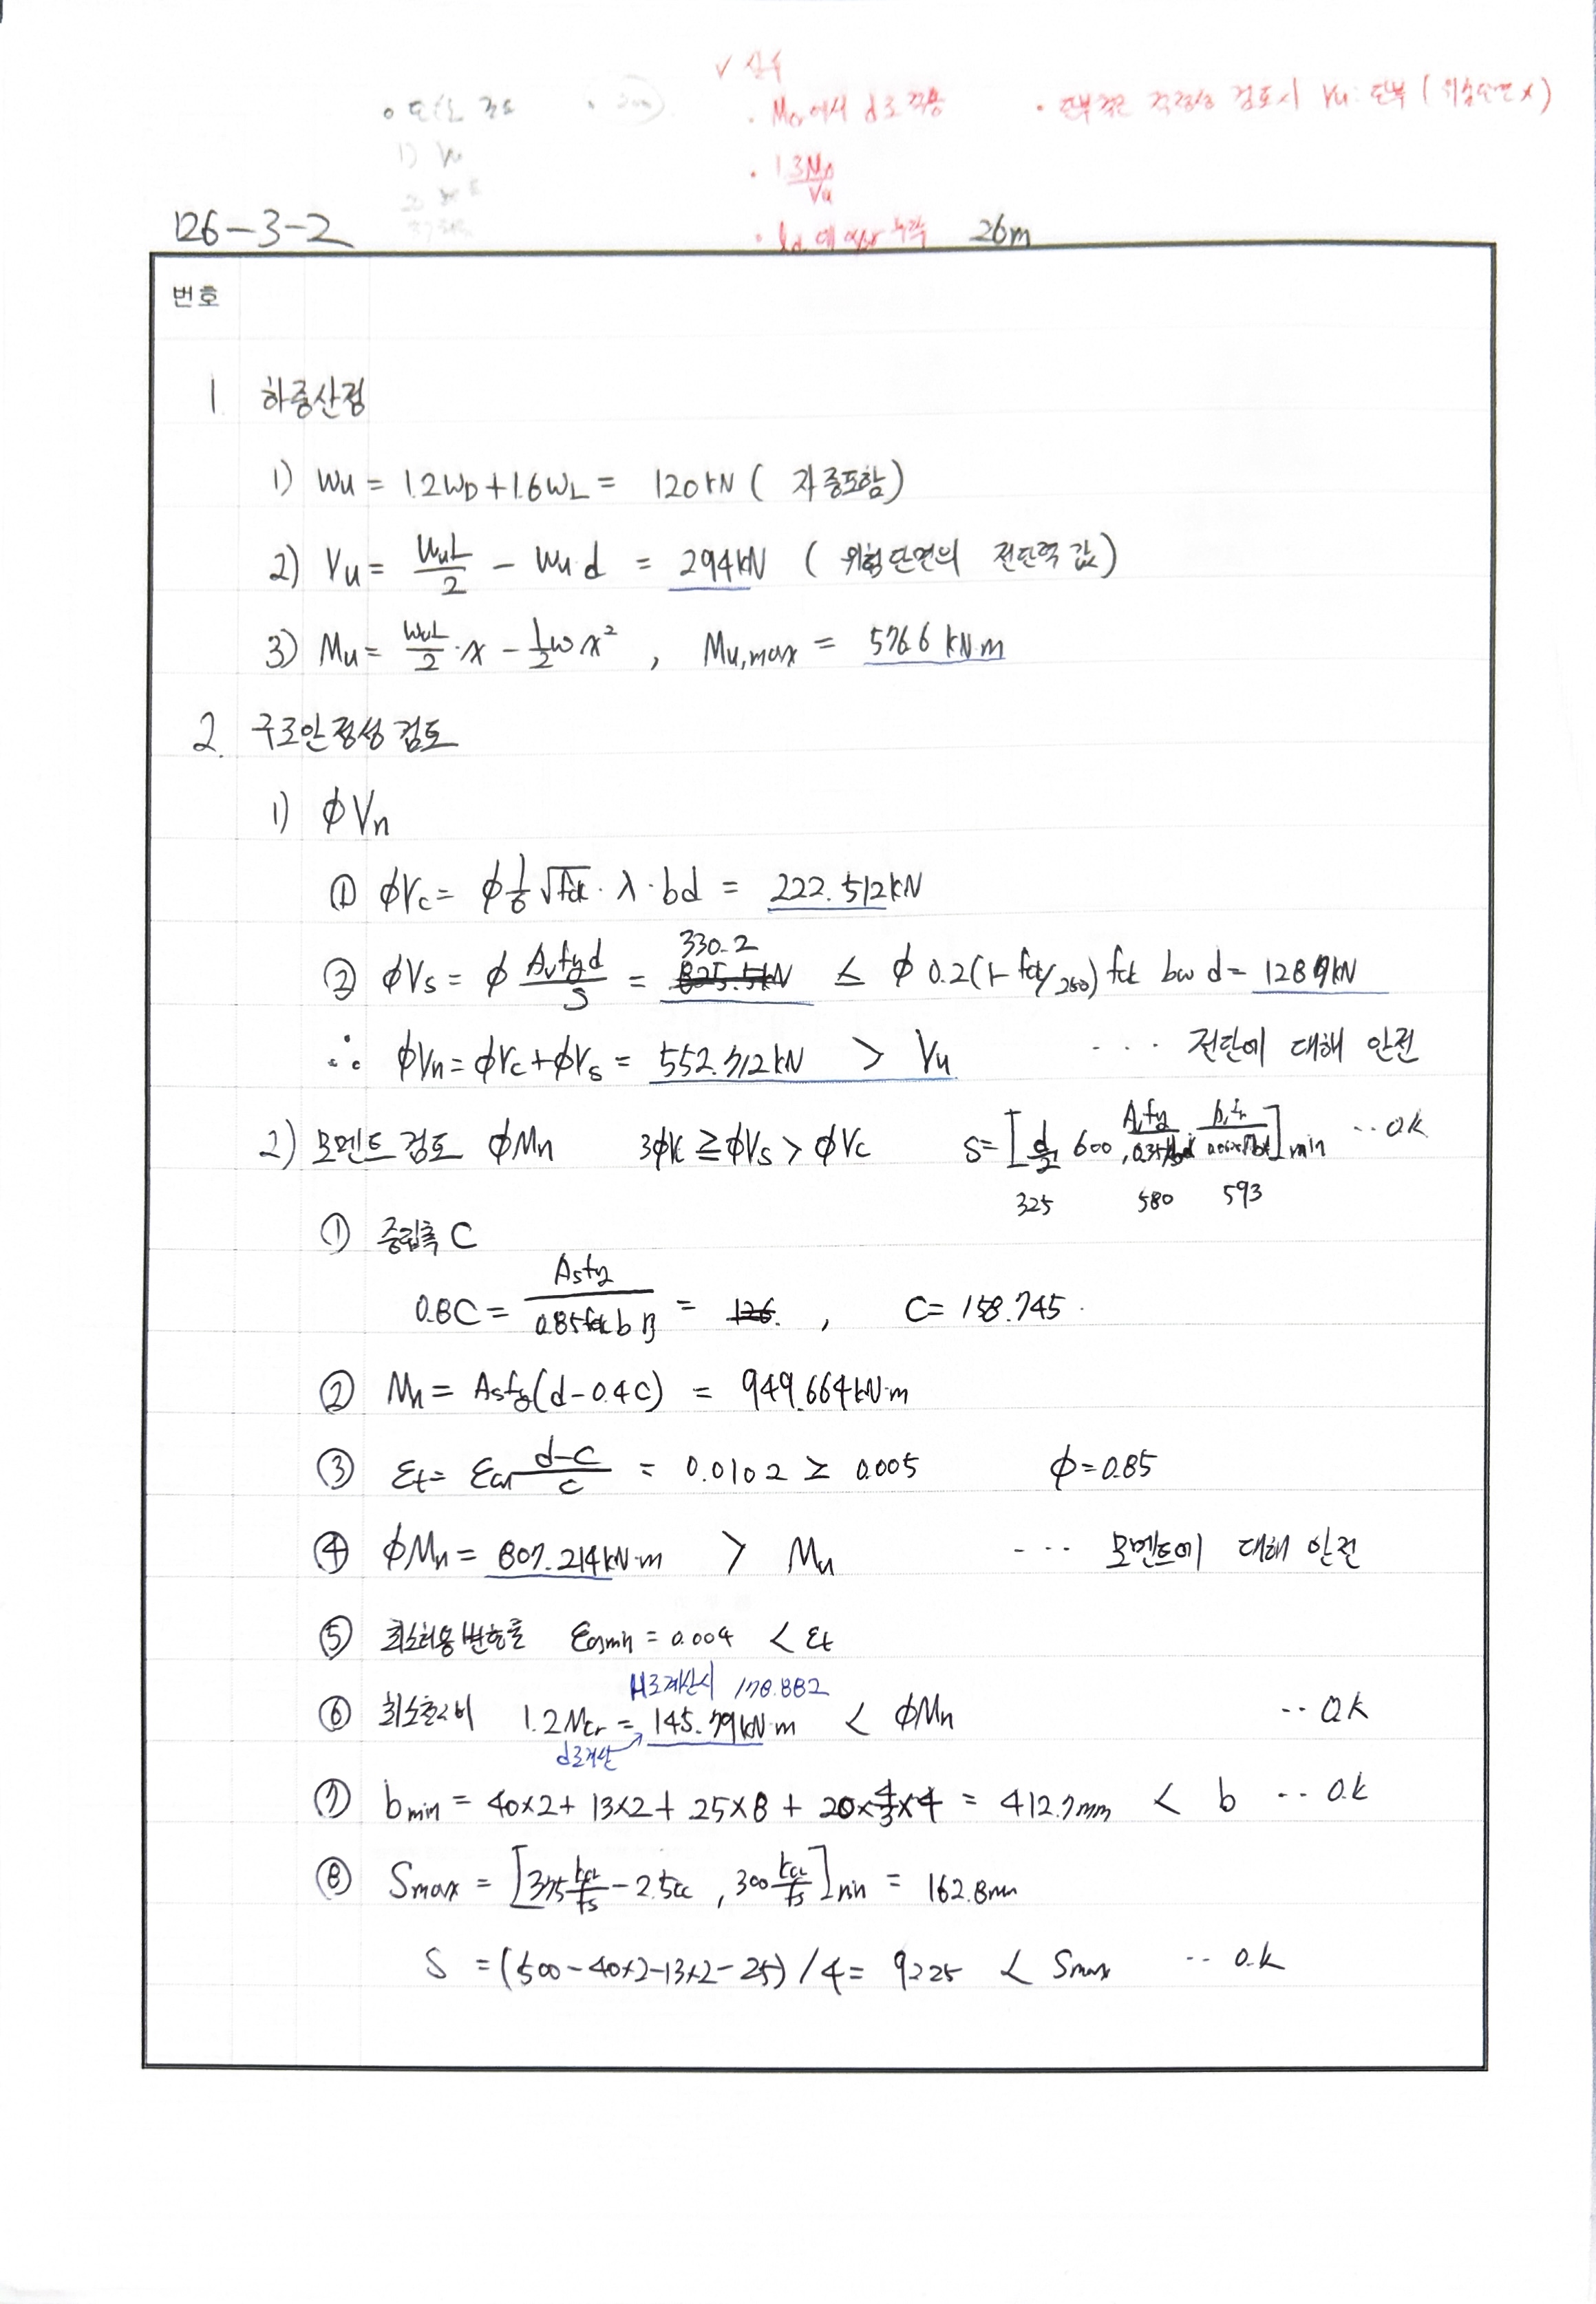 ✓ 실수
· Mcr에서 d로 적용
· 단부철근 적정성 검토시 Vu: 단부 (위험단면 x)
· 1.3Mn/Vu
· ld 에 누락
126-3-2
26m
번호
1. 하중산정
1) Wu = 1.2WD + 1.6WL = 120kN ( 자중포함)
2) Vu = WuL/2 - Wu d = 294kN ( 위험단면의 전단력 값)
3) Mu = WuL/2 · x - 1/2 w x² , Mu,max = 576.6 kN·m
2. 구조안정성 검토
1) ϕVn
① ϕVc = ϕ 1/6 √fck · λ · bd = 222.512kN
② ϕVs = ϕ Av fy d / s = 330.2 ≤ ϕ 0.2(1- fck/250) fck bw d = 1289kN
∴ ϕVn = ϕVc + ϕVs = 552.712kN > Vu ··· 전단에 대해 안전
2) 모멘트 검토 ϕMn 3ϕVc ≧ ϕVs > ϕVc s = [ d/2 600 , ]min ·· ok
325 580 593
① 중립축 C
0.8C = Asfy / 0.85fck b = , C = 158.745
② Mn = Asfy(d-0.4C) = 949.664kN·m
③ εt = εcu (d-c)/c = 0.0102 ≥ 0.005 ϕ = 0.85
④ ϕMn = 807.214kN·m > Mu ··· 모멘트에 대해 안전
⑤ 최소허용변형률 εa,min = 0.004 < εt
H로 계산시 178.882
⑥ 최소철근비 1.2Mcr = 145.79kN·m < ϕMn ·· O.k
d로계산
⑦ bmin = 40×2 + 13×2 + 25×8 + 20×4/3×4 = 412.7mm < b ·· O.k
⑧ Smax = [375 kcr/fs - 2.5cc , 300 kcr/fs]min = 162.8mm
S = (500-40×2-13×2-25) /4 = 92.25 < Smax ·· o.k